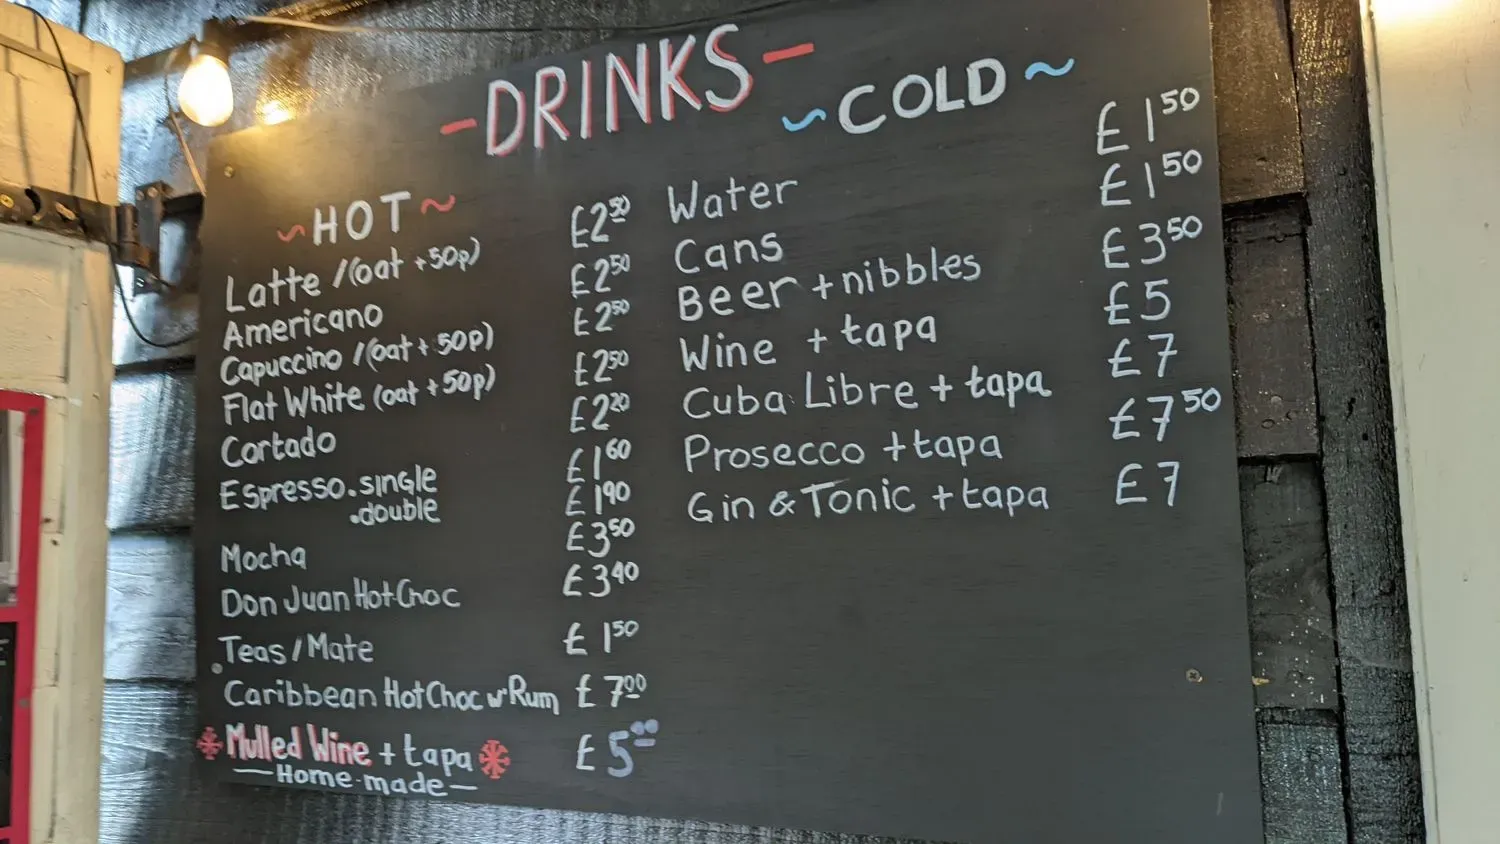 -DRINKS-
~HOT~
Latte /(oat +50p) £2⁵⁰
Americano £2⁵⁰
Capuccino /(oat + 50p) £2⁵⁰
Flat White (oat +50p) £2⁵⁰
Cortado £2²⁰
Espresso .single £1⁶⁰
.double £1⁹⁰
Mocha £3⁵⁰
Don Juan Hot Choc £3⁴⁰
Teas / Mate £1⁵⁰
Caribbean Hot Choc w Rum £7⁰⁰
Mulled Wine + tapa £5⁰⁰
—Home-made—
~COLD~
Water £1⁵⁰
Cans £1⁵⁰
Beer + nibbles £3⁵⁰
Wine + tapa £5
Cuba Libre + tapa £7
Prosecco + tapa £7⁵⁰
Gin & Tonic + tapa £7